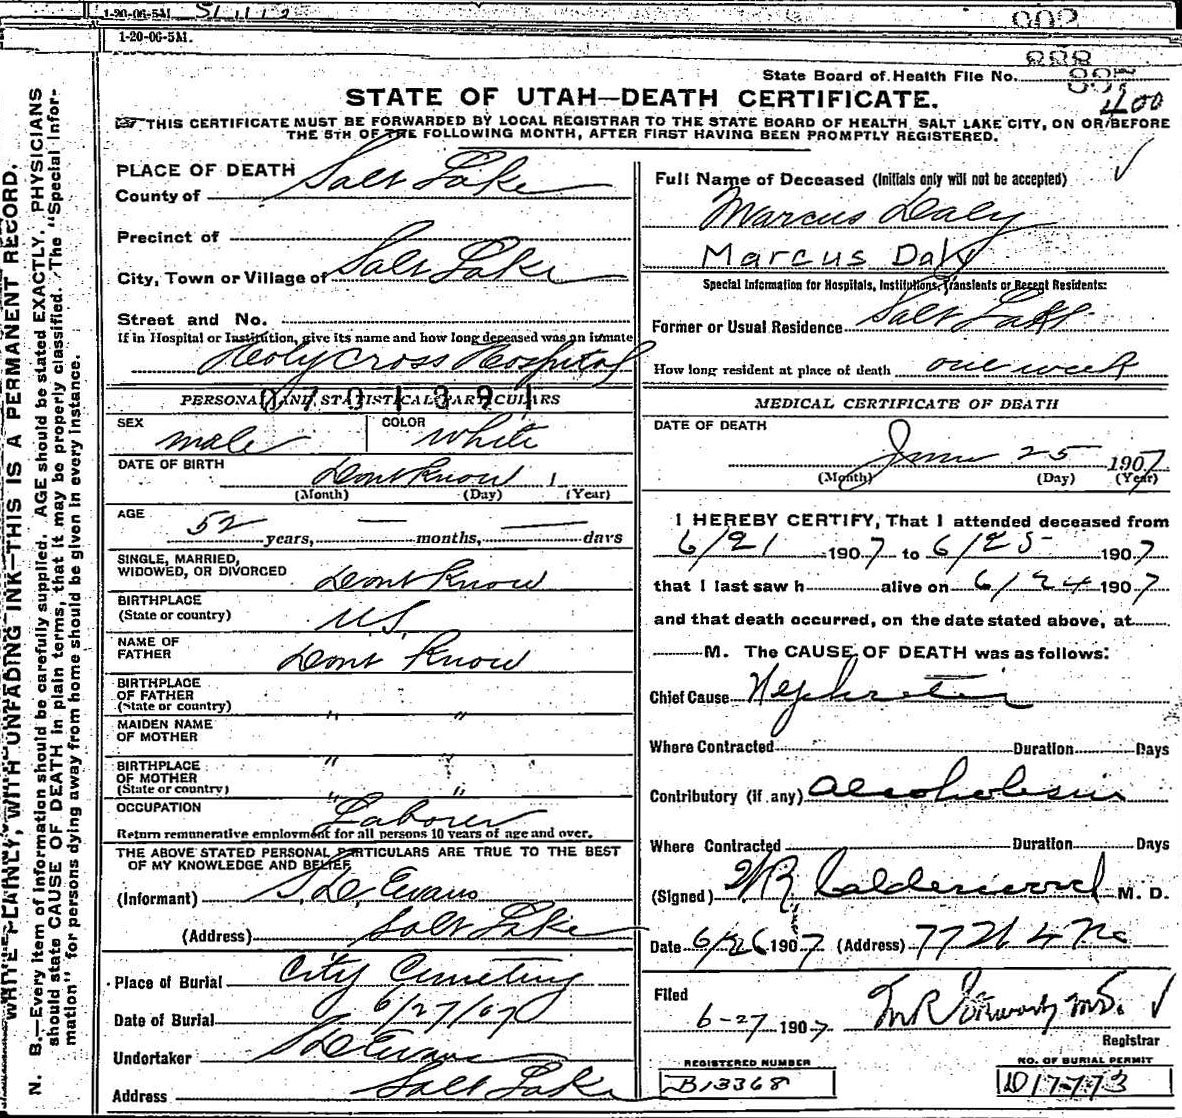 1-20-06-5M
1-20-06-5M.
State Board of Health File No.
400
STATE OF UTAH—DEATH CERTIFICATE.
THIS CERTIFICATE MUST BE FORWARDED BY LOCAL REGISTRAR TO THE STATE BOARD OF HEALTH, SALT LAKE CITY, ON OR BEFORE
THE 5TH OF THE FOLLOWING MONTH, AFTER FIRST HAVING BEEN PROMPTLY REGISTERED.
WRITE PLAINLY, WITH UNFADING INK—THIS IS A PERMANENT RECORD.
N. B.—Every item of information should be carefully supplied. AGE should be stated EXACTLY. PHYSICIANS
should state CAUSE OF DEATH in plain terms, that it may be properly classified. The "Special Infor-
mation" for persons dying away from home should be given in every instance.
PLACE OF DEATH
County of Salt Lake
Precinct of
City, Town or Village of Salt Lake
Street and No.
If in Hospital or Institution, give its name and how long deceased was an inmate
Holy Cross Hospital
0701391
PERSONAL AND STATISTICAL PARTICULARS
SEX male COLOR white
DATE OF BIRTH Dont Know
(Month) (Day) (Year)
AGE 52 years, — months, — days
SINGLE, MARRIED,
WIDOWED, OR DIVORCED Dont Know
BIRTHPLACE
(State or country) U.S.
NAME OF
FATHER Dont Know
BIRTHPLACE
OF FATHER
(State or country) " "
MAIDEN NAME
OF MOTHER " "
BIRTHPLACE
OF MOTHER
(State or country) " "
OCCUPATION Laborer
Return remunerative employment for all persons 10 years of age and over.
THE ABOVE STATED PERSONAL PARTICULARS ARE TRUE TO THE BEST
OF MY KNOWLEDGE AND BELIEF
(Informant) S. D. Evans
(Address) Salt Lake
Place of Burial City Cemetery
Date of Burial 6/27/07
Undertaker S D Evans
Address Salt Lake
Full Name of Deceased (Initials only will not be accepted)
Marcus Daly
Marcus Daly
Special Information for Hospitals, Institutions, Transients or Recent Residents:
Former or Usual Residence Salt Lake
How long resident at place of death one week
MEDICAL CERTIFICATE OF DEATH
DATE OF DEATH
June 25 1907
(Month) (Day) (Year)
I HEREBY CERTIFY, That I attended deceased from
6/21 1907 to 6/25 1907
that I last saw h alive on 6/24 1907
and that death occurred, on the date stated above, at
M. The CAUSE OF DEATH was as follows:
Chief Cause Nephritis
Where Contracted Duration Days
Contributory (if any) Alcoholism
Where Contracted Duration Days
(Signed) W R Calderwood M. D.
Date 6/26 1907 (Address)
Filed
6-27 1907
Registrar
REGISTERED NUMBER
B13368
NO. OF BURIAL PERMIT
D17773